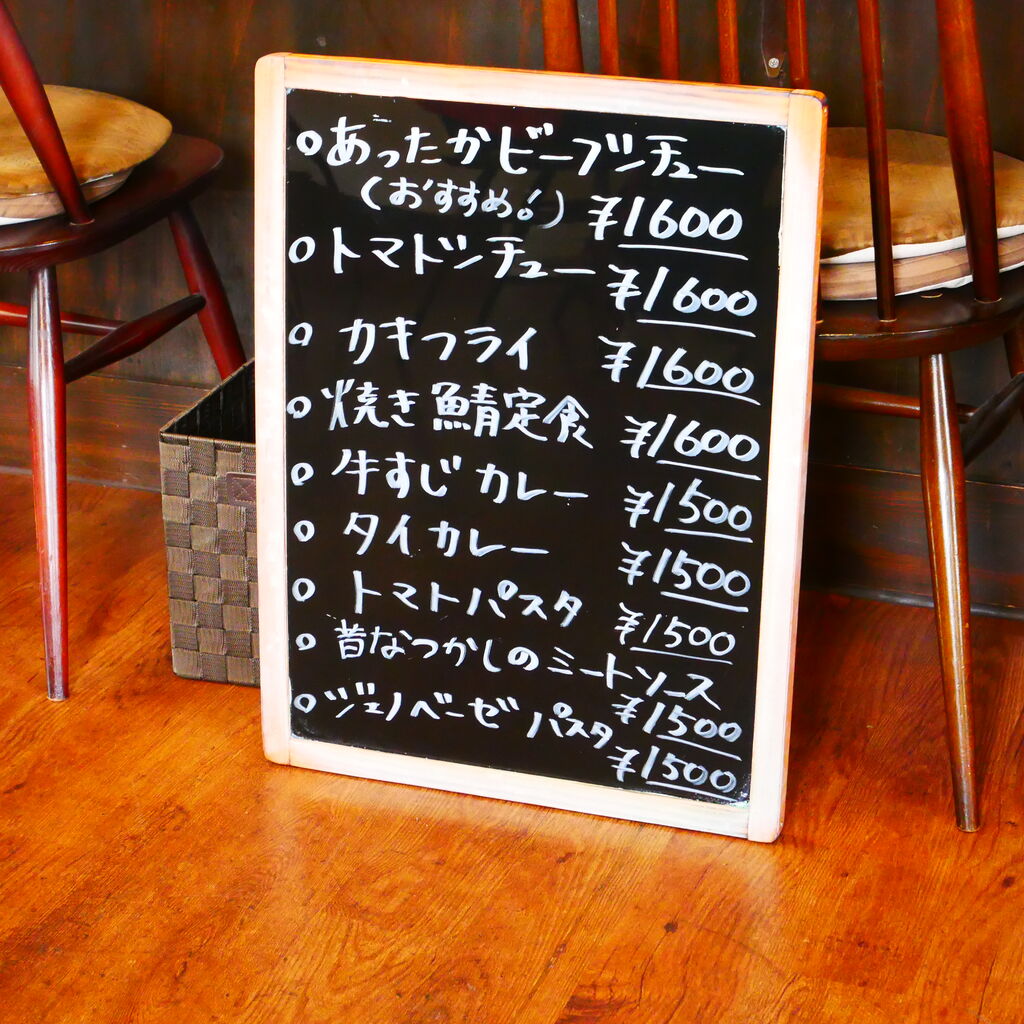 ○あったかビーフシチュー
(おすすめ!) ¥1600
○トマトシチュー ¥1600
○カキフライ ¥1600
○焼き鯖定食 ¥1600
○牛すじカレー ¥1500
○タイカレー ¥1500
○トマトパスタ ¥1500
○昔なつかしのミートソース
¥1500
○ジェノベーゼパスタ
¥1500